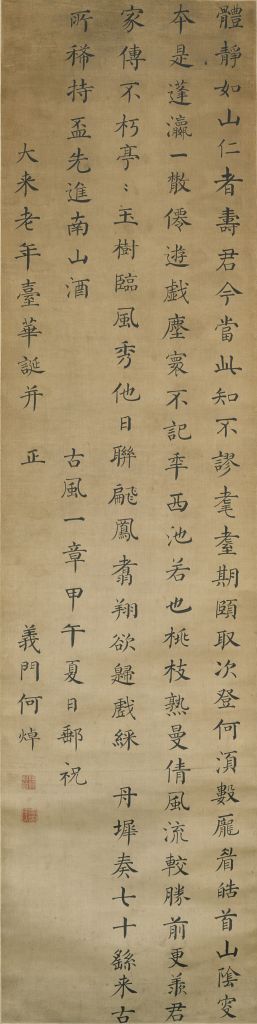 體靜如山仁者壽君今當此知不謬耄耋期頤取次登何須數龐眉皓首山陰
本是蓬瀛一散僊遊戲塵寰不記年西池若也桃枝熟曼倩風流較勝前更羨君
家傳不朽亭〻玉樹臨風秀他日聯翩鳳翥翔欲歸戲綵丹墀奏七十繇来古
所稀持盃先進南山酒
古風一章甲午夏日郵祝
大来老年臺華誕并正
義門何焯